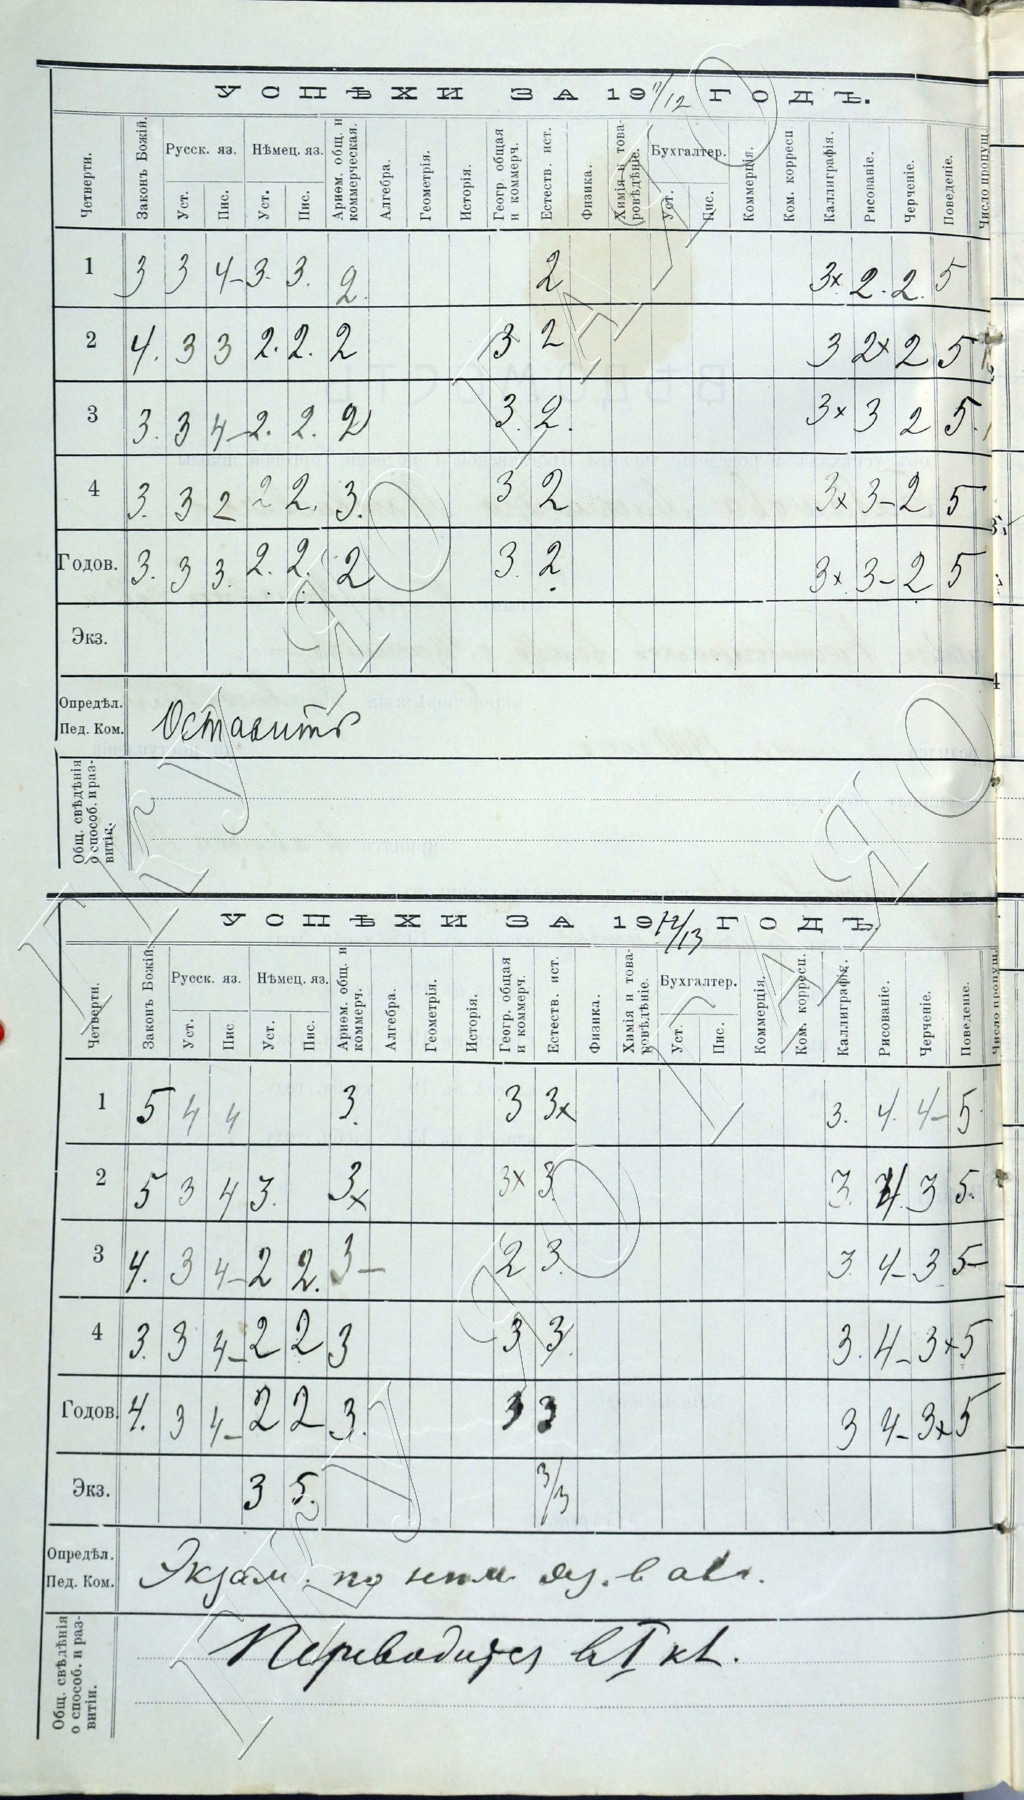 УСПѢХИ ЗА 19 11/12 ГОДЪ.
Четверти. Законъ Божій. Русск. яз. Уст. Пис. Нѣмец. яз. Уст. Пис. Ариѳм. общ. и коммерческая. Алгебра. Геометрія. Исторія. Геогр. общая и коммерч. Естеств. ист. Физика. Химія и това- ровѣдѣніе. Бухгалтер. Уст. Пис. Коммерція. Ком. корресп. Каллиграфія. Рисованіе. Черченіе. Поведеніе. Число пропущ
1 3 3 4- 3. 3. 2. 2 3x 2. 2. 5
2 4. 3 3 2. 2. 2 3 2 3 2x 2 5
3 3. 3 4- 2. 2. 2 3. 2. 3x 3 2 5.
4 3. 3 2 2 2. 3. 3 2 3x 3- 2 5
Годов. 3. 3 3. 2. 2. 2 3. 2. 3x 3- 2 5
Экз.
Опредѣл.
Пед. Ком. Оставить
Общ. свѣдѣнія
о способ. и раз-
витіи.
УСПѢХИ ЗА 19 12/13 ГОДЪ.
Четверти. Законъ Божій. Русск. яз. Уст. Пис. Нѣмец. яз. Уст. Пис. Ариѳм. общ. и коммерч. Алгебра. Геометрія. Исторія. Геогр. общая и коммерч. Естеств. ист. Физика. Химія и това- ровѣдѣніе. Бухгалтер. Уст. Пис. Коммерція. Ком. корресп. Каллиграфія. Рисованіе. Черченіе. Поведеніе. Число пропущ.
1 5 4 4 3. 3 3x 3. 4. 4- 5
2 5 3 4 3. 3x 3x 3. 3. 4. 3 5.
3 4. 3 4- 2 2. 3- 2 3. 3. 4- 3 5-
4 3. 3 4- 2 2 3 3 3. 3. 4- 3x 5
Годов. 4. 3 4- 2 2 3. 3 3 3 4- 3x 5
Экз. 3 5. 3/3
Опредѣл.
Пед. Ком. Экзам. по нѣм. яз. в авг.
Общ. свѣдѣнія
о способ. и раз-
витіи.
Переводится в I кл.